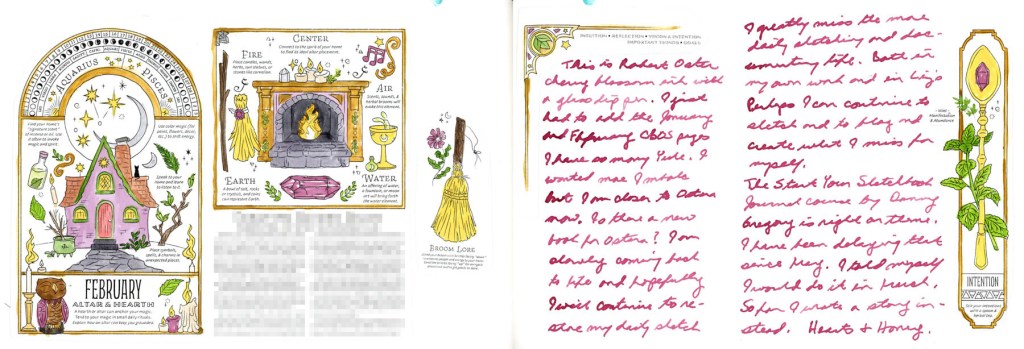 AQUARIUS
PISCES
Find your home's
"signature scent"
of incense or oil. Use
it often to awake
magic and spirit.
Use color magic (for
paint, flowers, decor,
etc.) to shift energy.
Speak to your
home and learn
to listen to it.
Place symbols,
spells, & charms in
unexpected places.
FEBRUARY
ALTAR & HEARTH
A hearth or altar can anchor your magic.
Tend to your magic in small daily rituals.
Explore how an altar can keep you grounded.
CENTER
Connect to the spirit of your home
to find its ideal altar placement.
FIRE
Place candles, wands,
herbs, sun shapes, or
stones like carnelian.
AIR
Scents, sounds, &
herbal brooms will
make this element.
EARTH
A bowl of salt, rocks
or crystals, and coins
can represent Earth.
WATER
An offering of water,
a fountain, or moon
art will bring forth
the water element.
BROOM LORE
INTUITION • REFLECTION • VISION & INTENTION
IMPORTANT THINGS • GOALS
This is Robert Oster
cherry blossom ink with
a glass dip pen. I just
had to add the January
and February CBOS pages
I have so many Yule. I
wanted more Imbolc
but I am closer to Ostara
now. Is there a new
book for Ostara? I am
slowly coming back
to life and hopefully
I will continue to re-
store my daily sketch
I greatly miss the more
daily sketching and doc-
umenting life. Both in
my own work and in Liz's
Perhaps I can continue to
sketch and to blog and
create what I miss for
myself.
The Start Your Sketchbook
Journal course by Danny
Gregory is right on theme.
I have been delaying that
since May. I told myself
I would do it in March.
So far I wrote a story in-
stead. Hearts & Honey.
Manifestation
& Abundance
INTENTION
Stir your intentions
with a spoon &
herbal tea.